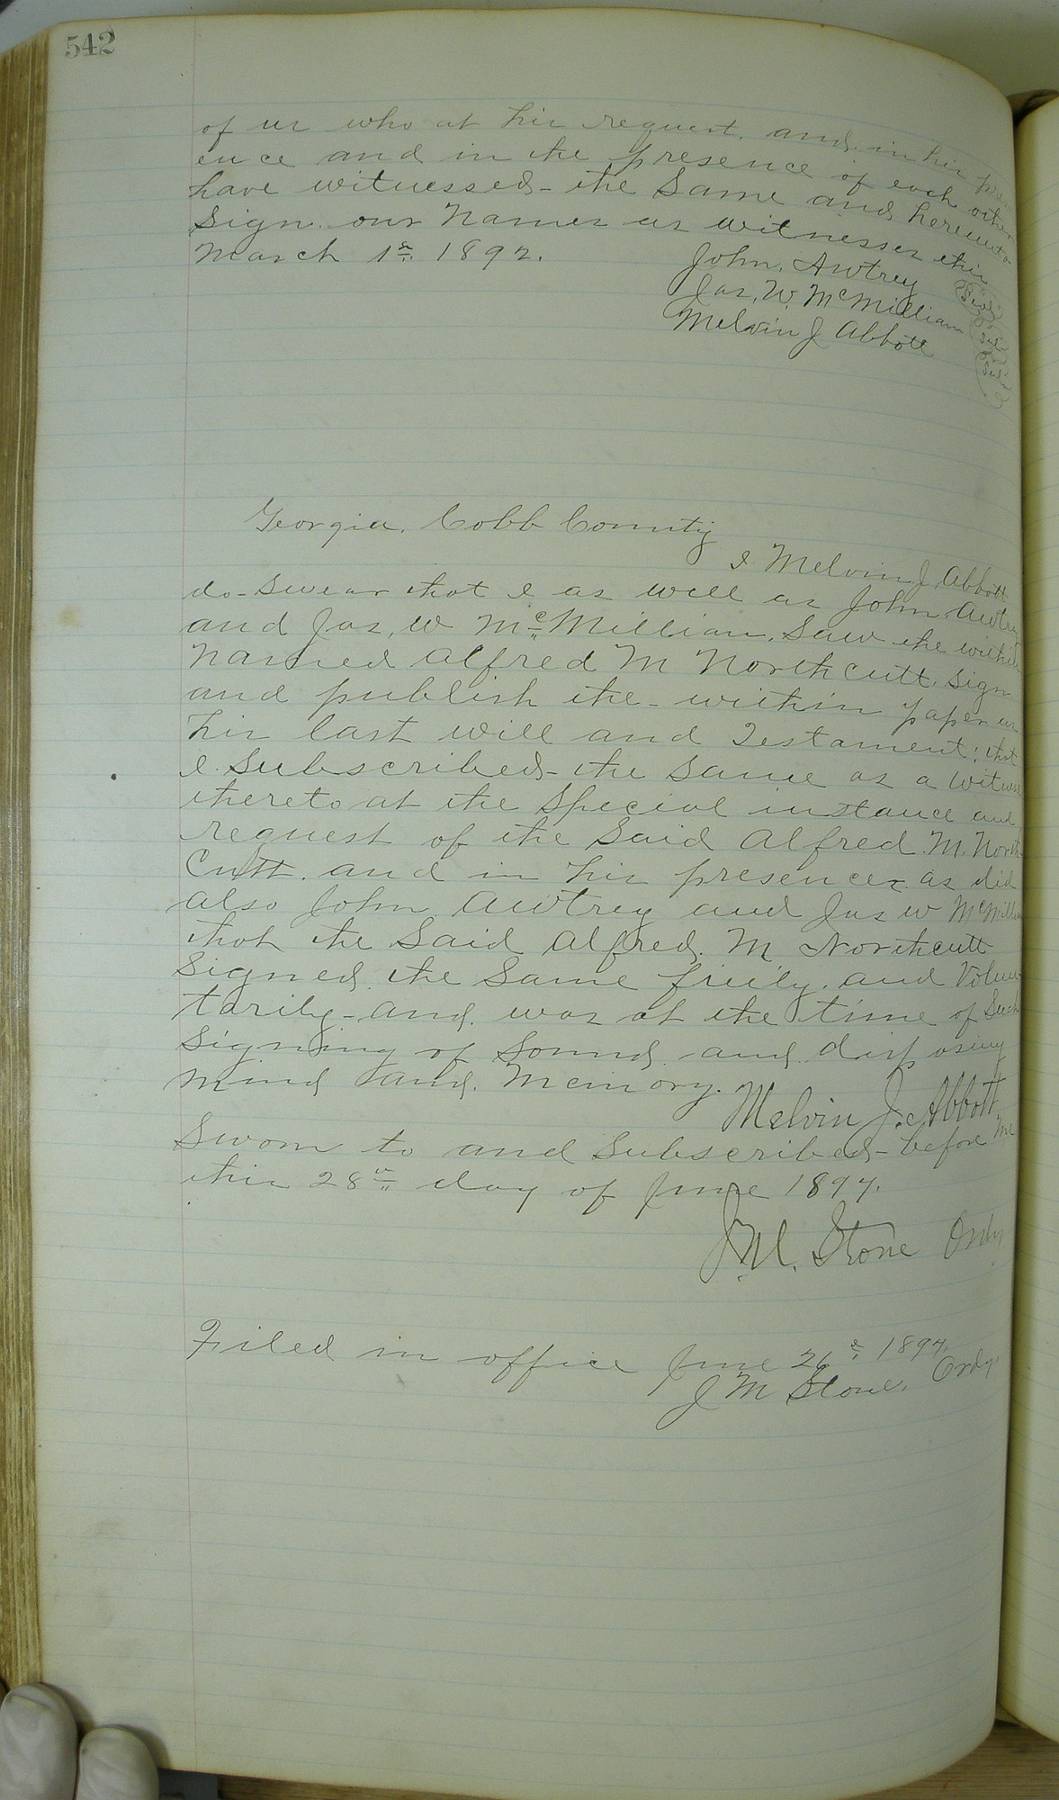 542
of us who at his request. and in his pres
ence and in the presence of each other
have witnessed the Same and hereunto
Sign our Names as witnesses this
March 1st 1892.
John. Awtrey Seal
Jas. W. McMilliam Seal
Melvin J Abbott Seal
Georgia. Cobb County
I Melvin J Abbott
do swear that I as well as John Awtrey
and Jas. W McMillian. Saw the within
Named Alfred M Northcutt. Sign
and publish the within paper as
his last will and Testament; that
I Subscribed the Same as a witness
thereto at the Special instance and
request of the Said Alfred. M. North-
Cutt. and in his presence as did
also John Awtrey and Jas W McMillian
that the Said Alfred. M Northcutt
Signed. the Same freely. and Volun
tarily and. was at the time of Such
Signing of Sound. and disposing
mind and. Memory.
Melvin J. Abbott
Sworn to and Subscribed before me
this 28th day of June 1897.
J.M. Stone Ordy
Filed in office June 26th 1897.
J M Stone. Ordy